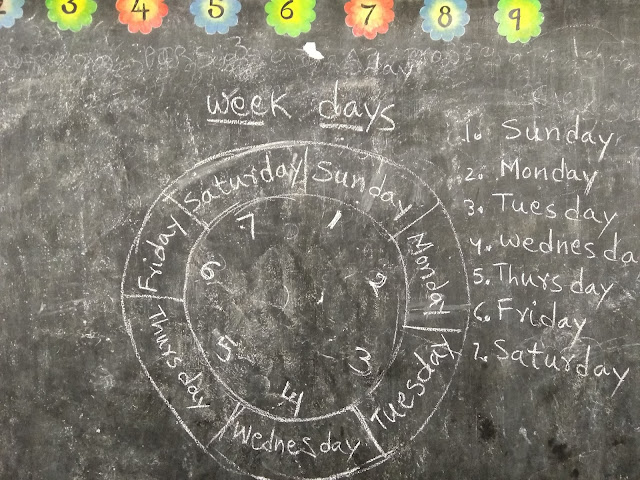 3 4 5 6 7 8 9
day
week days
Saturday
Sunday
Monday
Tuesday
Wednesday
Thursday
Friday
1
2
3
4
5
6
7
1. Sunday
2. Monday
3. Tuesday
4. wednesda
5. Thursday
6. Friday
7. Saturday